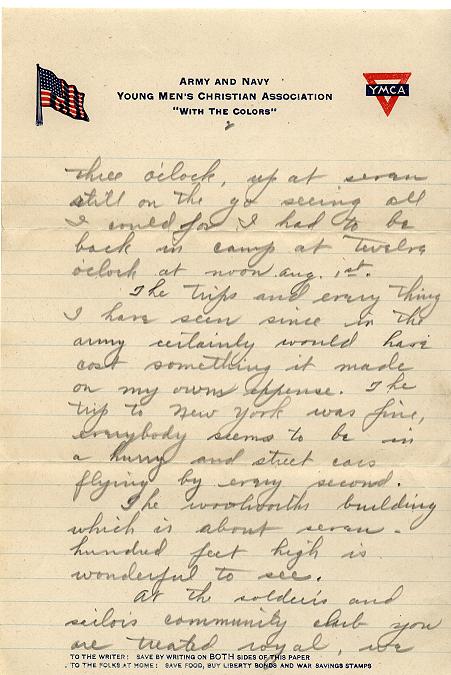 ARMY AND NAVY
YOUNG MEN'S CHRISTIAN ASSOCIATION
"WITH THE COLORS"
YMCA
2
three o'clock, up at seven
still on the go seeing all
I could for I had to be
back in camp at twelve
o'clock at noon Aug. 1st.
The trips and every thing
I have seen since in the
army certainly would have
cost something it made
on my own expense. The
trip to New York was fine,
everybody seems to be in
a hurry and street cars
flying by every second.
The woolworths building
which is about seven-
hundred feet high is
wonderful to see.
At the soldiers and
sailors community club you
are treated royal, we
TO THE WRITER: SAVE BY WRITING ON BOTH SIDES OF THIS PAPER
TO THE FOLKS AT HOME: SAVE FOOD, BUY LIBERTY BONDS AND WAR SAVINGS STAMPS